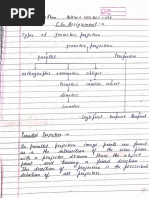 CG Assignment : 4
Types of geometric projection
geometric projection
parallel Perspective
orthographic axonometric oblique
trimetric cavalier cabinet
dimetric
isometric
Parallel Projection :-
In parallel projection image points are found
as the intersection of the view plane
with a projector drawn from the object
point and having a fixed direction.
The direction of projection is the prescribed
direction of all projectors.